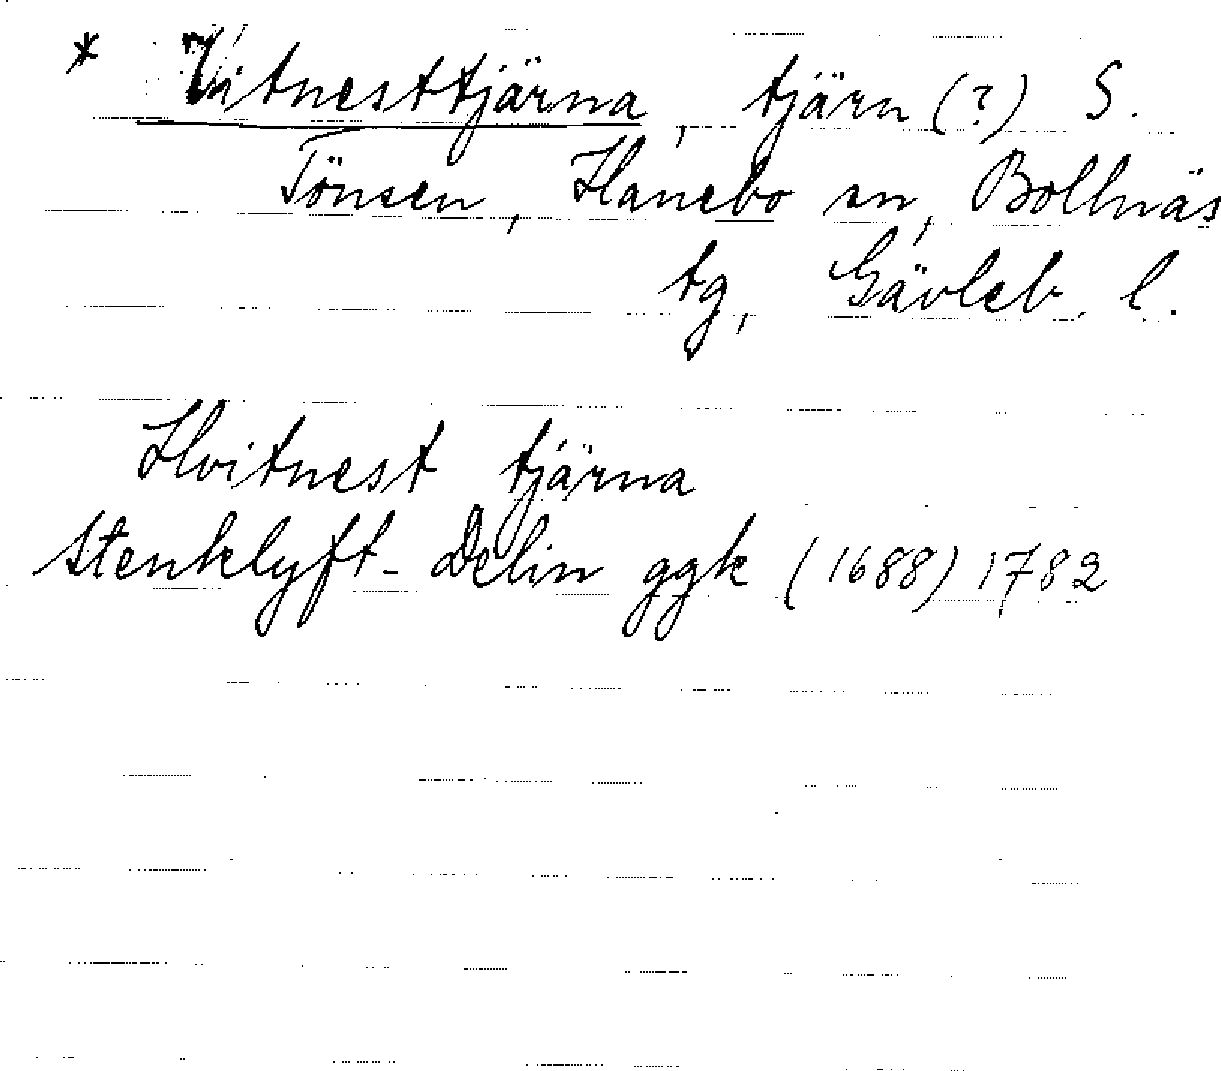 * Vitnesttjärna, tjärn (?) S.
Tönsen, Hanebo sn, Bollnäs
tg, Gävleb. l.
Hvitnest tjärna
Stenklyft- Delin ggk (1688) 1782